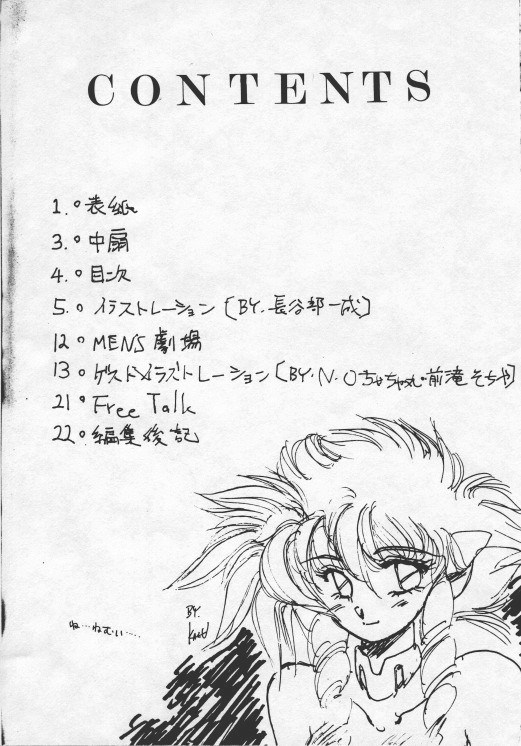 CONTENTS
1.○表紙
3.○中扉
4.○目次
5.○イラストレーション〔BY.長谷部一成〕
12○MENS劇場
13○ゲストイラストレーション〔BY.N.Oちゃちゃ丸 前滝そちゃ〕
21○Free Talk
22○編集後記
BY
ね…ねむい……